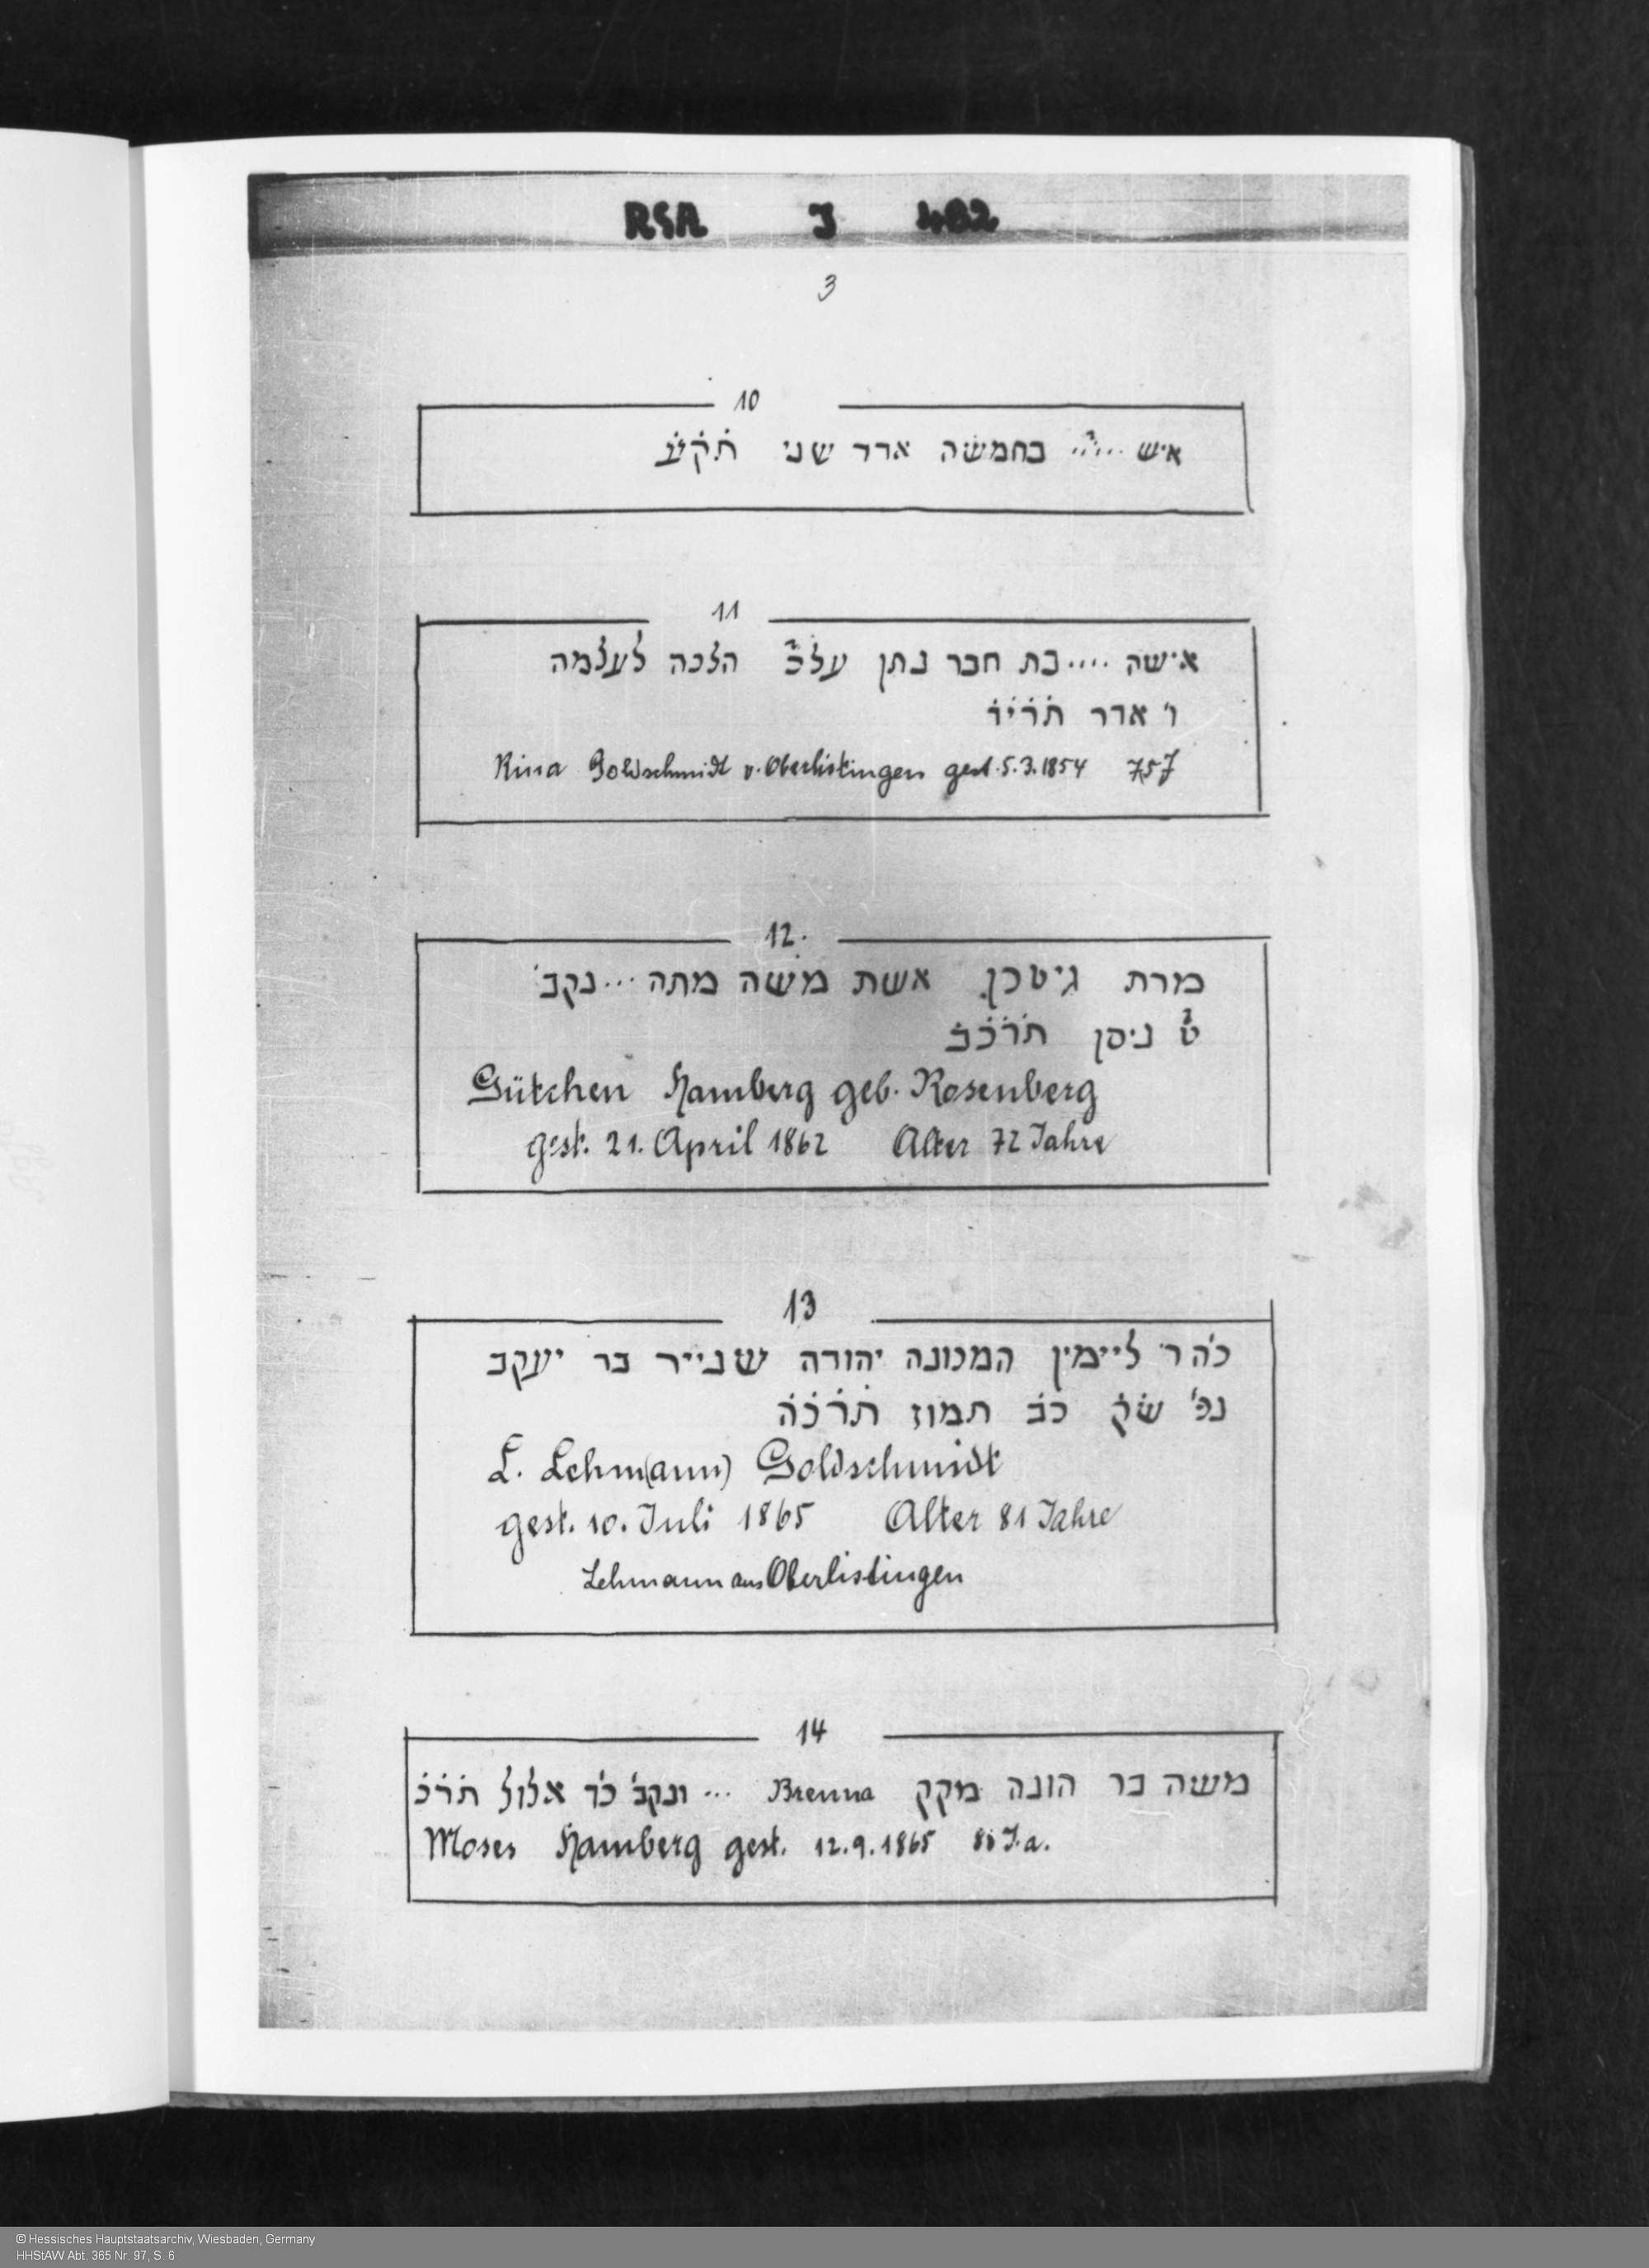 RSA J 482
3
10
איש ..... בחמשה אדר שני
11
אישה .... בת חבר נתן הלכה לעלמה
ו' אדר תריד
Rina Goldschmidt v. Oberlistingen gest. 5.3.1854
12.
מרת גיטכן אשת משה מתה ... נקב'
ט ניסן תרכב
Gütchen Hamberg geb. Rosenberg
gest. 21. April 1862 Alter 72 Jahre
13
כהר ליימין המכונה יהודה שנייר בר יעקב
נפ' שק כב תמוז תרכה
L. Lehm(ann) Goldschmidt
gest. 10. Juli 1865 Alter 81 Jahre
Lehmann aus Oberlistingen
14
משה בר הונה מקק Brenna ... ונקב' כד אלול תרכ
Moses Hamberg gest. 12.9.1865 J.a.
© Hessisches Hauptstaatsarchiv, Wiesbaden, Germany
HHStAW Abt. 365 Nr. 97, S. 6